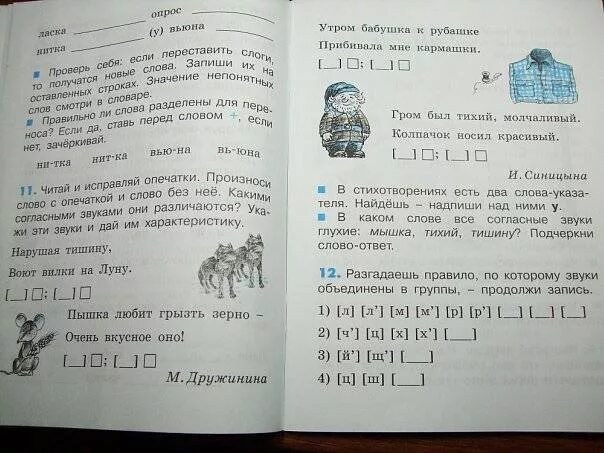 ласка ____________ опрос ____________
нитка ____________ (у) вьюна ____________
■ Проверь себя: если переставить слоги,
то получатся новые слова. Запиши их на
оставленных строках. Значение непонятных
слов смотри в словаре.
■ Правильно ли слова разделены для пере-
носа? Если да, ставь перед словом +, если
нет, зачёркивай.
ни-тка нит-ка вью-на вь-юна
11. Читай и исправляй опечатки. Произноси
слово с опечаткой и слово без неё. Какими
согласными звуками они различаются? Ука-
жи эти звуки и дай им характеристику.
Нарушая тишину,
Воют вилки на Луну.
[__] □; [__] □
Пышка любит грызть зерно –
Очень вкусное оно!
[__] □; [__] □
М. Дружинина
Утром бабушка к рубашке
Прибивала мне кармашки.
[__] □; [__] □
Гром был тихий, молчаливый.
Колпачок носил красивый.
[__] □; [__] □
И. Синицына
■ В стихотворениях есть два слова-указа-
теля. Найдёшь – надпиши над ними у.
■ В каком слове все согласные звуки
глухие: мышка, тихий, тишину? Подчеркни
слово-ответ.
12. Разгадаешь правило, по которому звуки
объединены в группы, – продолжи запись.
1) [л] [л’] [м] [м’] [р] [р’] [___] [___]
2) [ч’] [ц] [х] [х’] [___]
3) [й’] [щ’] [___]
4) [ц] [ш] [___]